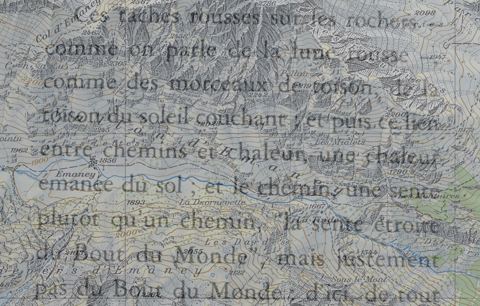 Col d'Emaney
2098
Ces taches rousses sur les rochers
comme on parle de la lune rousse
comme des morceaux de toison, de la
toison du soleil couchant ; et puis ce lien
entre chemins et chaleur, une chaleur
1856
Emaney
émanée du sol ; et le chemin, une sente
1893
plutôt qu'un chemin, "la sente étroite
du Bout du Monde", mais justement
d'Emaney
Sous le Mont
pas du Bout du Monde ; d'ici, de tout